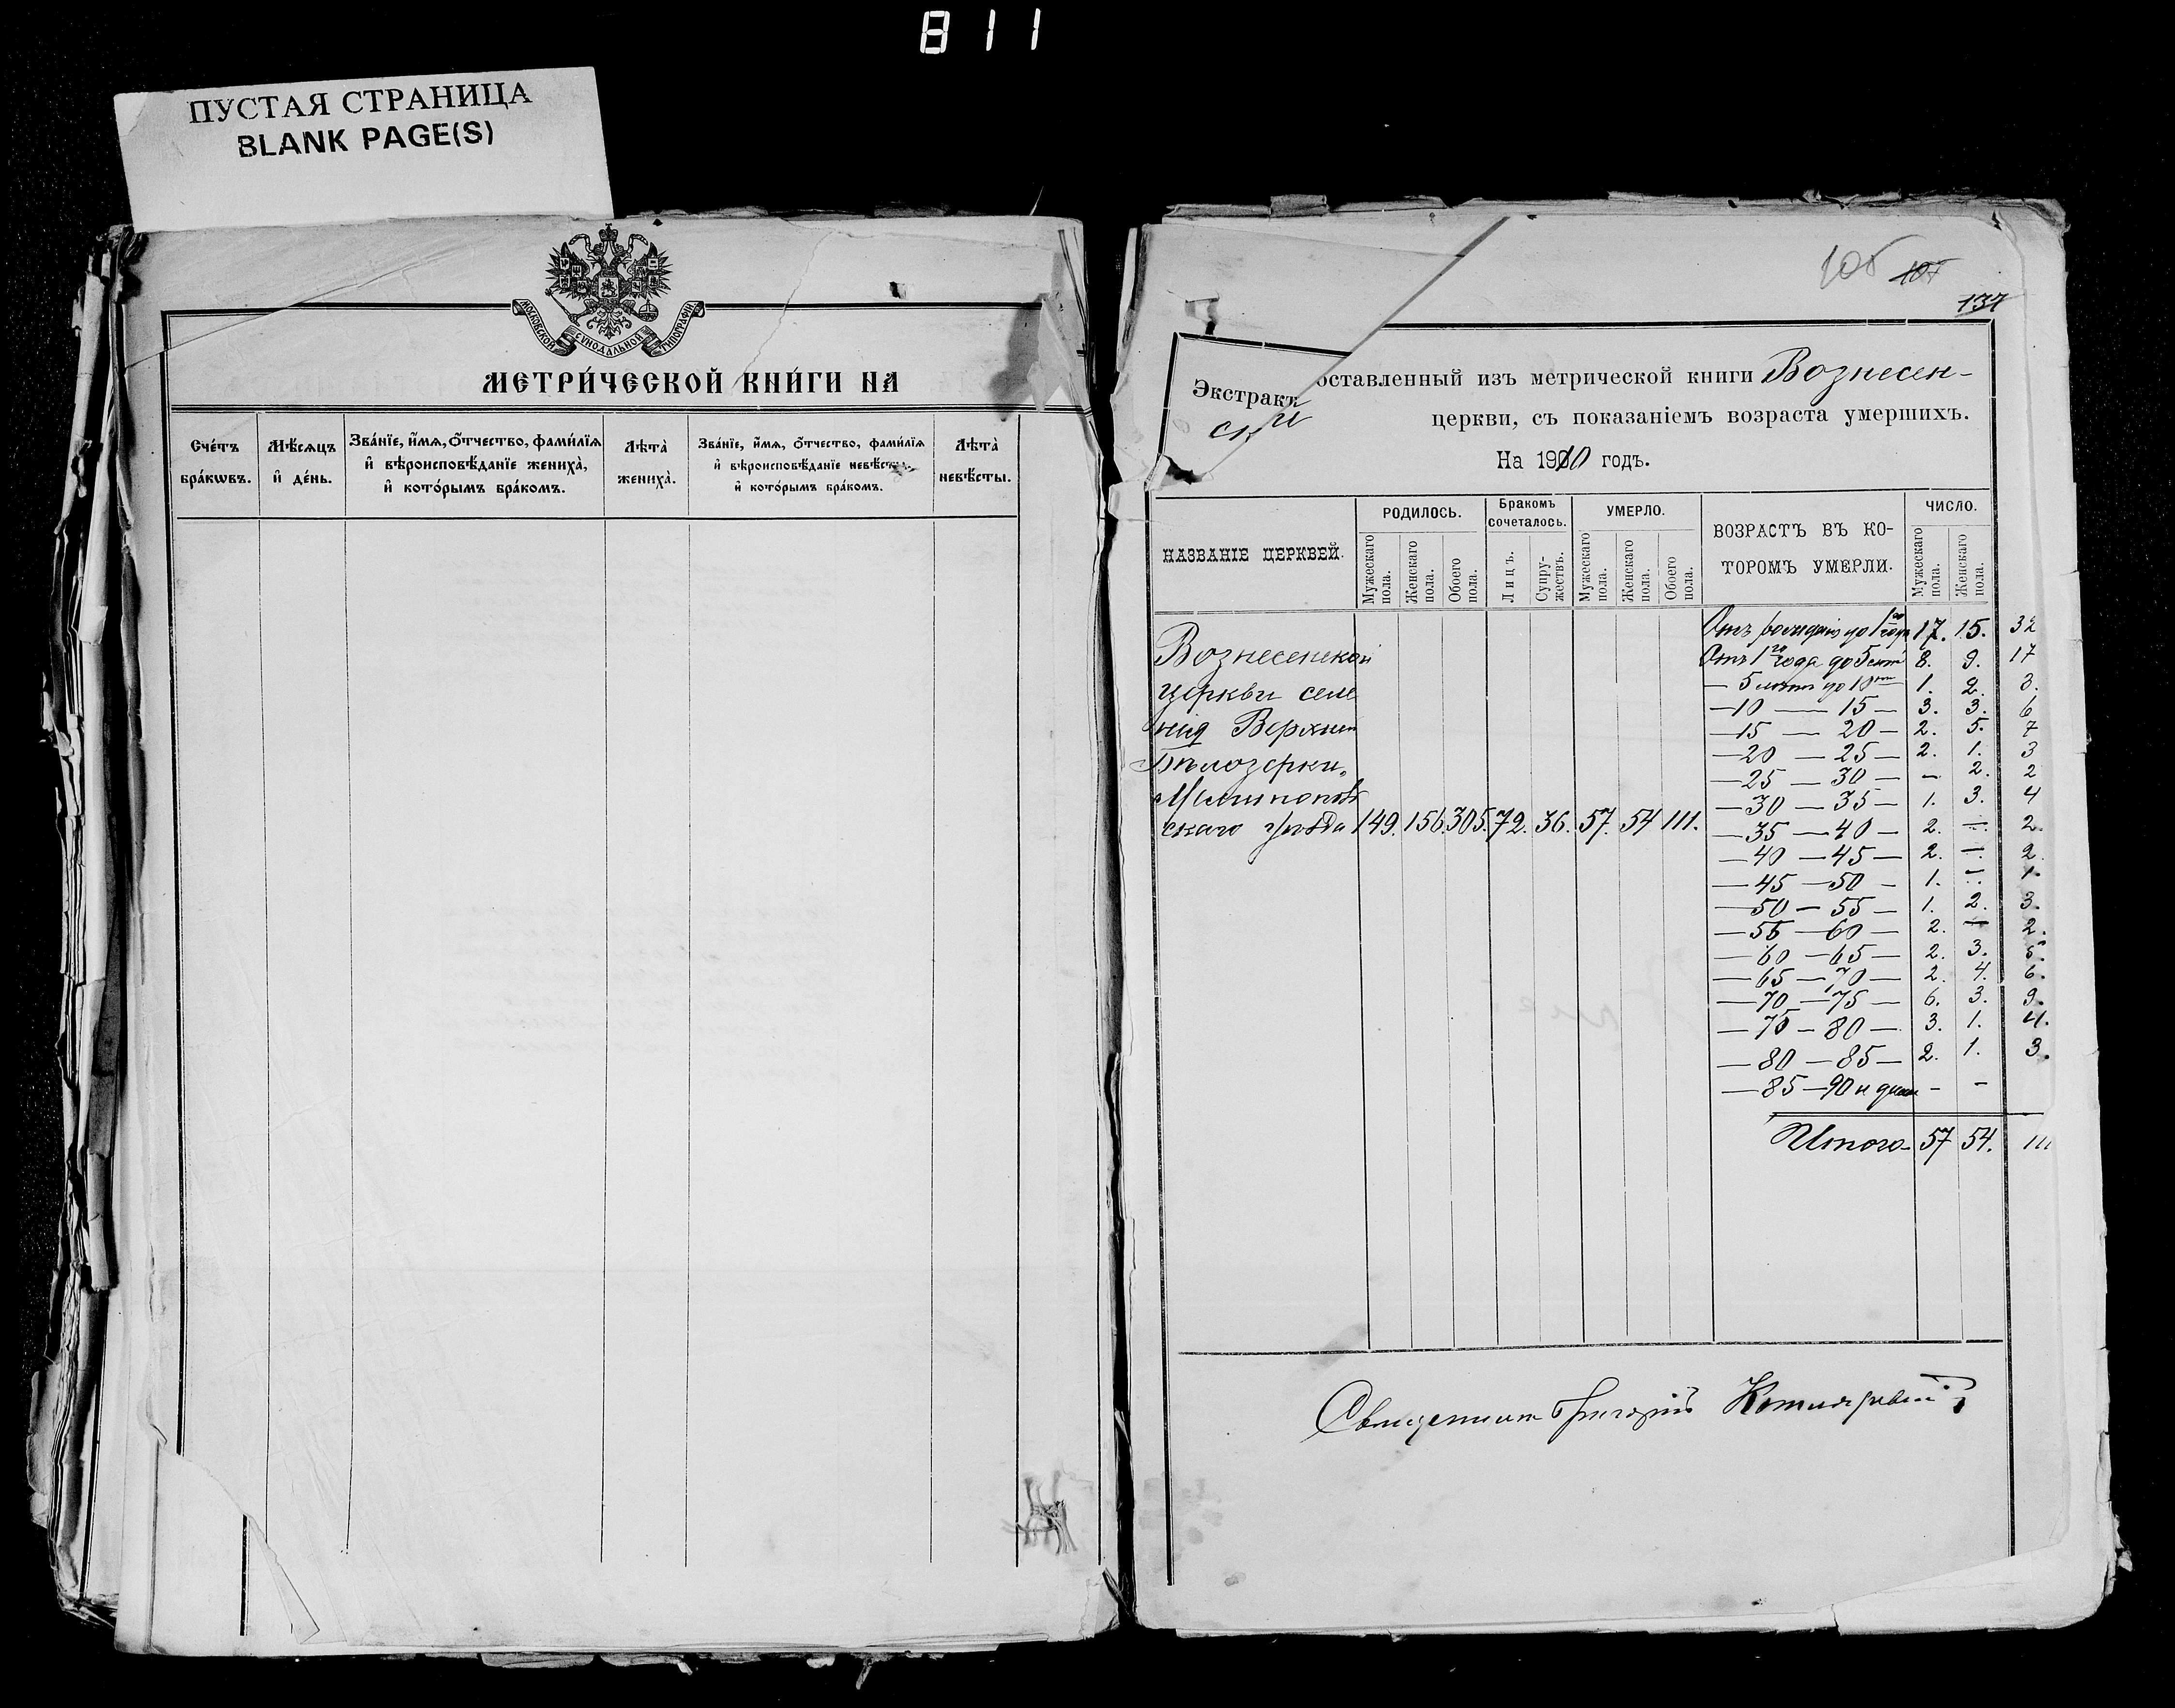 811
ПУСТАЯ СТРАНИЦА
BLANK PAGE(S)
МОСКОВСКОЙ СУНОДАЛЬНОЙ ТИПОГРАФІИ
МЕТРИ́ЧЕСКОЙ КНИ́ГИ НА
Сче́тъ бра́кѡвъ.
Мѣ́сѧцъ и҆ де́нь.
Зва́нїе, и҆́мѧ, ѻ҆́тчество, фами́лїѧ
и҆ вѣроисповѣ́данїе жениха̀,
и҆ кото́рымъ бра́комъ.
Лѣта̀ жениха̀.
Зва́нїе, и҆́мѧ, ѻ҆́тчество, фами́лїѧ
и҆ вѣроисповѣ́данїе невѣ́сты,
и҆ кото́рымъ бра́комъ.
Лѣта̀ невѣ́сты.
105 105
137
Экстрактъ оставленный изъ метрической книги Вознесен-
ской церкви, съ показаніемъ возраста умершихъ.
На 1910 годъ.
НАЗВАНІЕ ЦЕРКВЕЙ.
РОДИЛОСЬ.
Мужескаго пола.
Женскаго пола.
Обоего пола.
Бракомъ сочеталось.
Лицъ.
Супружествъ.
УМЕРЛО.
Мужескаго пола.
Женскаго пола.
Обоего пола.
ВОЗРАСТЪ ВЪ КО-
ТОРОМЪ УМЕРЛИ.
ЧИСЛО.
Мужескаго пола.
Женскаго пола.
Вознесенской
церкви селе
нія Верхней
Бѣлозерки,
Мелитополь
скаго уѣзда 149. 156 305. 72. 36. 57. 54 111.
Отъ рожденія до 1го года 17. 15. 32
Отъ 1го года до 5 лѣтъ 8. 9. 17
— 5 лѣтъ до 10ти 1. 2. 3.
— 10 — 15 — 3. 3. 6
— 15 — 20 — 2. 5. 7
— 20 — 25 — 2. 1. 3
— 25 — 30 — — 2. 2
— 30 — 35 — 1. 3. 4
— 35 — 40 — 2. — 2.
— 40 — 45 — 2. — 2.
— 45 — 50 — 1. — 1.
— 50 — 55 — 1. 2. 3.
— 55 — 60 — 2. — 2.
— 60 — 65 — 2. 3. 5.
— 65 — 70 — 2. 4. 6.
— 70 — 75 — 6. 3. 9.
— 75 — 80 — 3. 1. 4.
— 80 — 85 — 2. 1. 3.
— 85 — 90 и далѣе — —
Итого — 57 54. 111
Священникъ Григорій Котляревскій